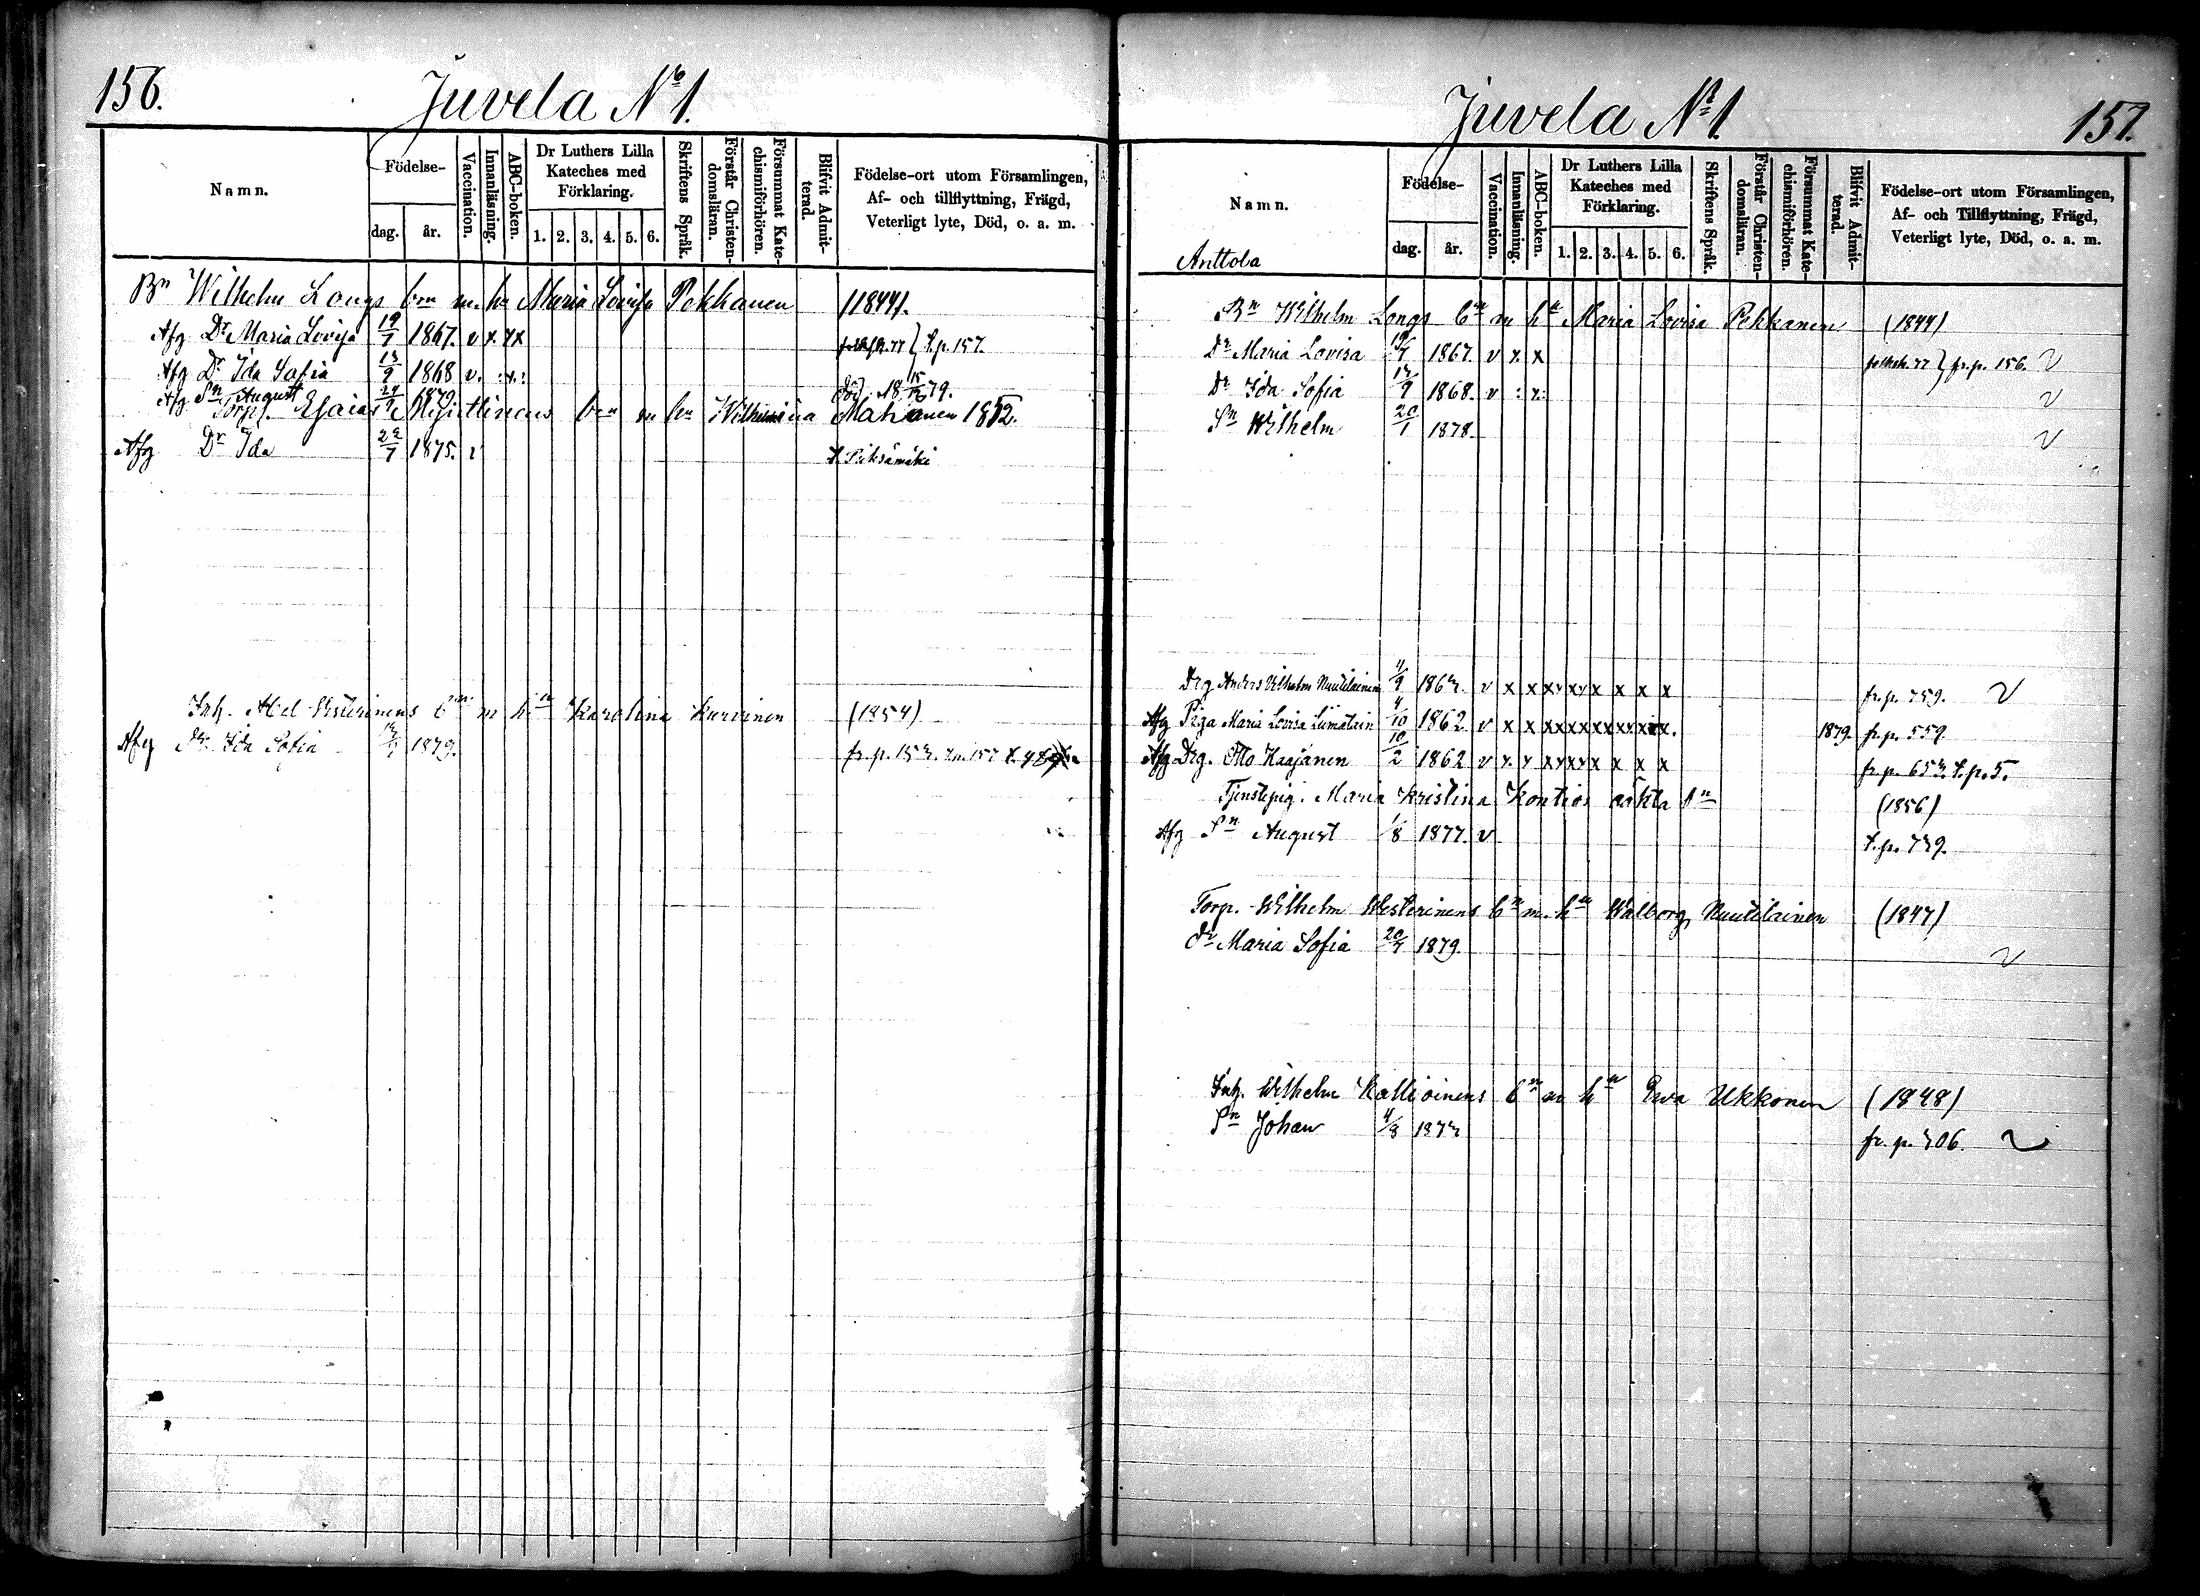 156.
Juvela No 1.
Namn.
Födelse-
dag.
år.
Vaccination.
Innanläsning.
ABC-boken.
Dr Luthers Lilla Kateches med Förklaring.
1. 2. 3. 4. 5. 6.
Skriftens Språk.
Förstår Christen-domsläran.
Försummat Kate-chismiförhören.
Blifvit Admit-terad.
Födelse-ort utom Församlingen,
Af- och tillflyttning, Frägd,
Veterligt lyte, Död, o. a. m.
Bn Wilhelm Longs bn m. hn Maria Lovisa Pekkanen (1844).
Afg Dr Maria Lovisa 19/7 1867. v x xx t.p. 157.
Afg Dr Ida Sofia 13/9 1868 v. :x:
Afg Sn August 24/9 1879. död 15/12 1879.
Torp. Esaias bn m hn Wilhelmina 1852.
Afg Dr Ida 22/7 1875. v t. Pieksämäki
Inh. Abel Westerinens bn m hn Karolina Kurvinen (1854)
Afg dr Ida Sofia 1879.
Juvela No 1
157.
Namn.
Anttola
Födelse-
dag.
år.
Vaccination.
Innanläsning.
ABC-boken.
Dr Luthers Lilla Kateches med Förklaring.
1. 2. 3. 4. 5. 6.
Skriftens Språk.
Förstår Christen-domsläran.
Försummat Kate-chismiförhören.
Blifvit Admit-terad.
Födelse-ort utom Församlingen,
Af- och Tillflyttning, Frägd,
Veterligt lyte, Död, o. a. m.
Bn Wilhelm Longs bn m hn Maria Lovisa Pekkanen (1844)
Dr Maria Lovisa 19/7 1867. v x x fr. p. 156. v
Dr Ida Sofia 13/9 1868. v :x: v
Sn Wilhelm 20/1 1878. v
Drg Anders Vilhelm Nuutilainen 11/9 1863. v x x xx xx x x x x fr. p. 759. v
Afg Piga Maria Lovisa Liimatain 4/10 1862 v x x xx xx xx xx xx xx. 1879 fr. p. 559.
Afg Drg. Otto Haajanen 10/2 1862 v x x xx xx x x x x fr. p. 653. t. p. 5.
Tjenstepig. Maria Kristina Kontios oäkta Sn (1856)
Afg Sn August 1/8 1877. v t. p. 739.
Torp. Wilhelm Westerinens bn m. hn Walborg Nuutilainen (1847)
dr Maria Sofia 20/7 1879. v
Inh. Wilhelm Kallioinens bn m hn Eva Ukkonen (1848)
Sn Johan 4/8 1873 fr. p. 306. v